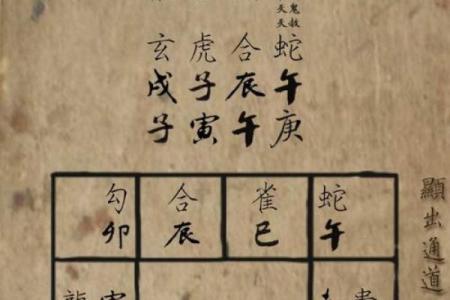 蛇午庚
合辰午
虎子寅
玄戌子
蛇午
雀巳
合辰
勾卯
顯出通道